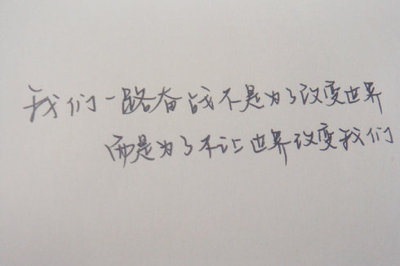 我们一路奋战不是为了改变世界
而是为了不让世界改变我们